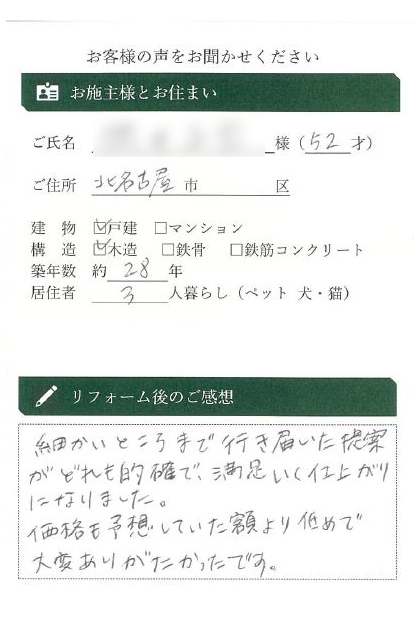 お客様の声をお聞かせください
お施主様とお住まい
ご氏名 様（52才）
ご住所 北名古屋市 区
建物 ☑戸建 □マンション
構造 ☑木造 □鉄骨 □鉄筋コンクリート
築年数 約28年
居住者 3人暮らし（ペット 犬・猫）
リフォーム後のご感想
細かいところまで行き届いた提案
がどれも的確で、満足いく仕上がり
になりました。
価格も予想していた額より低めで
大変ありがたかったです。